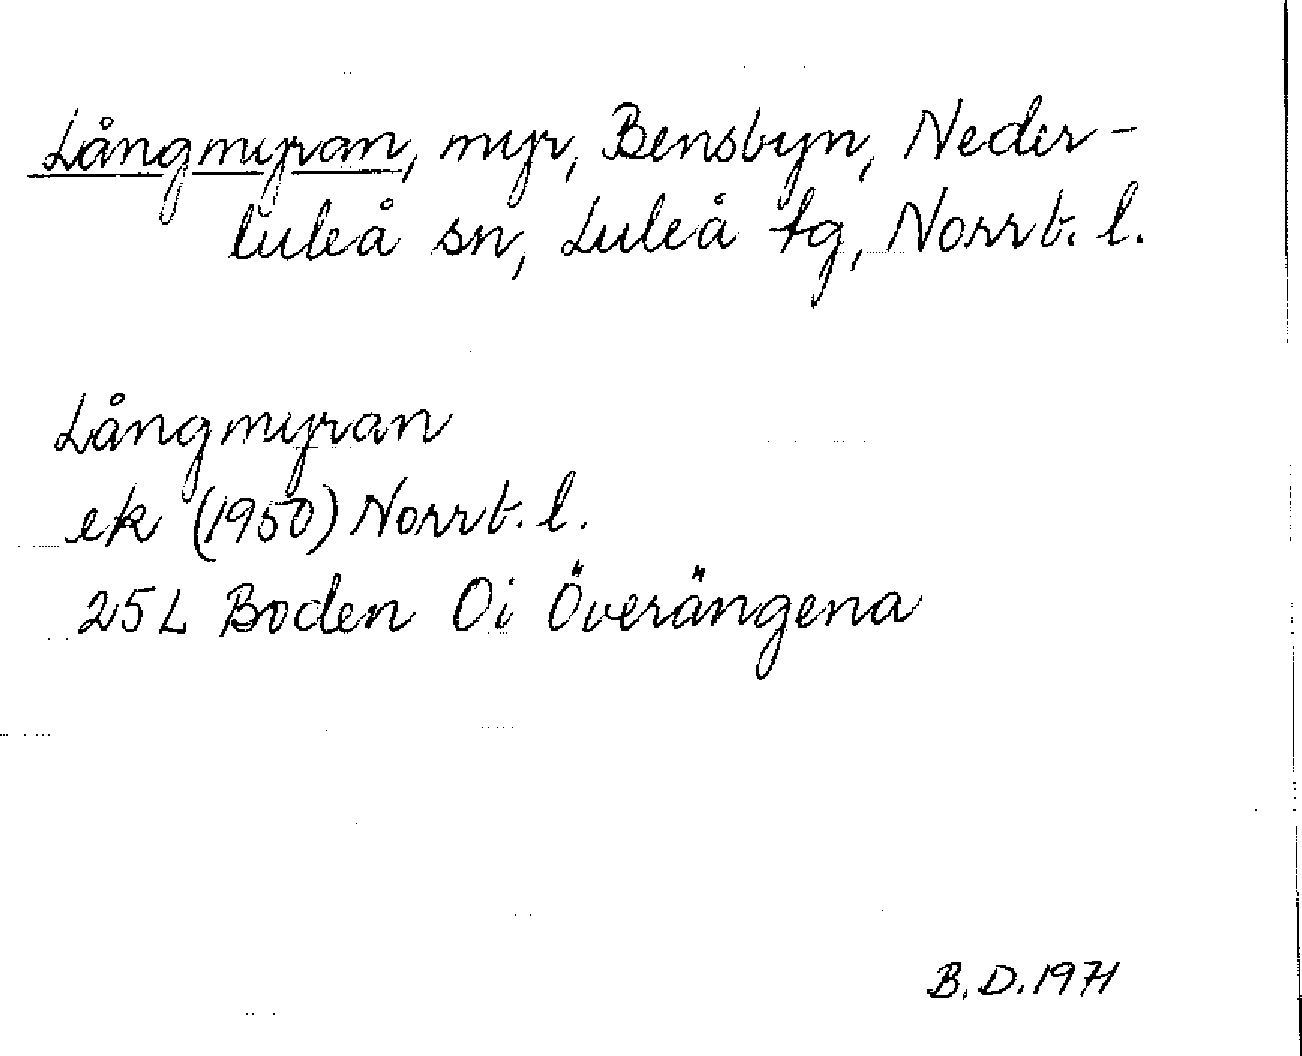 Långmyran, myr, Bensbyn, Neder-
luleå sn, Luleå tg, Norrb. l.
Långmyran
ek (1950) Norrb. l.
25L Boden 0i Överängena
B.D. 1971